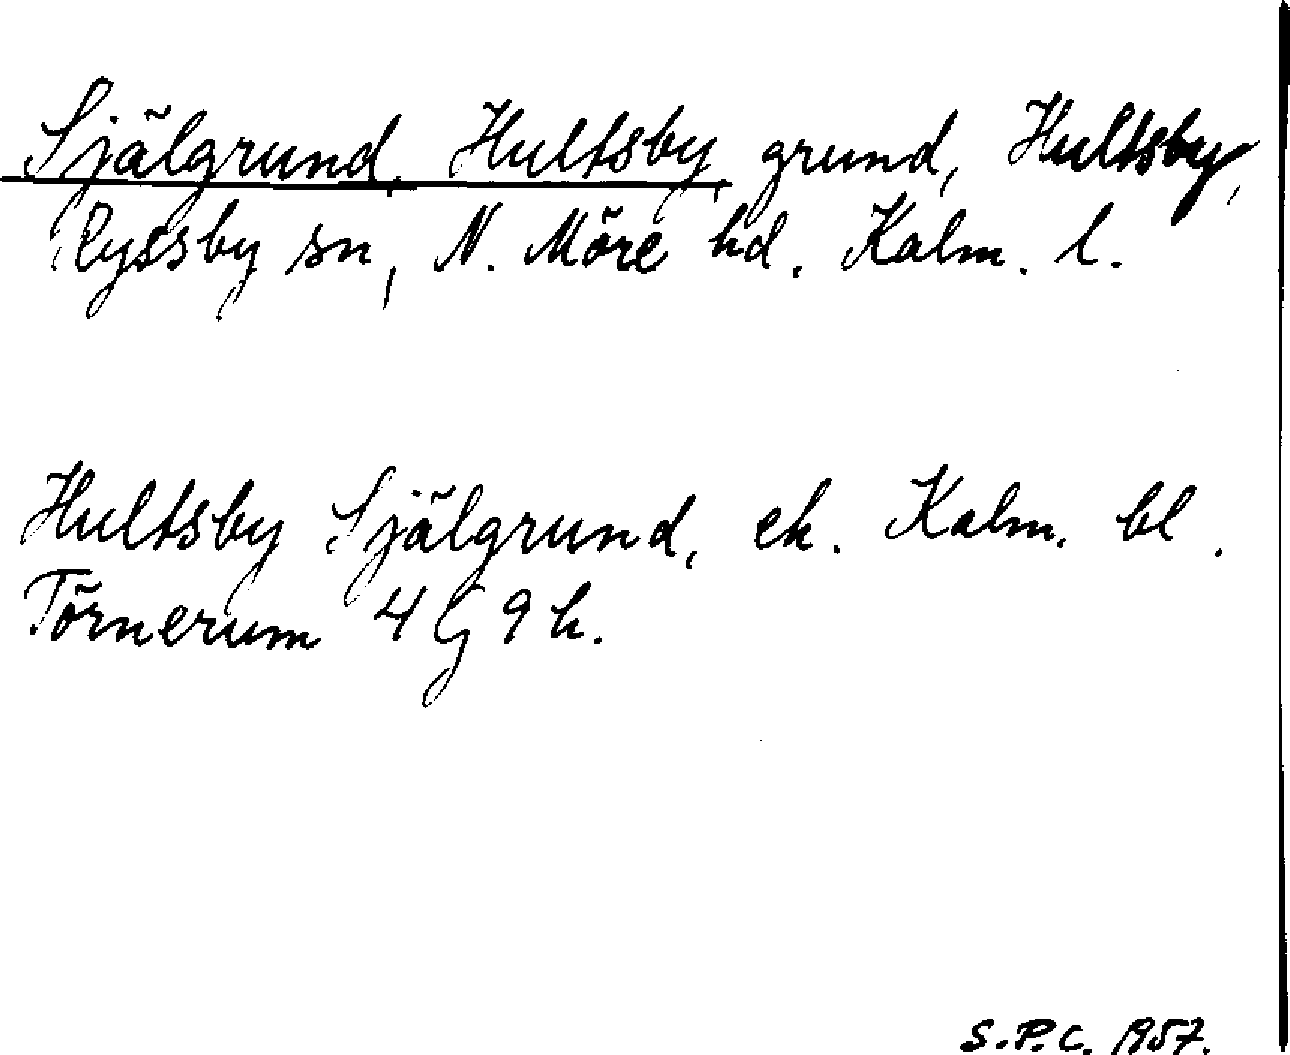 Själgrund, Hultsby, grund, Hultsby,
Ryssby sn, N. Möre hd. Kalm. l.
Hultsby Själgrund, ek. Kalm. bl.
Törnerum 4 G 9 h.
S.P.C. 1957.